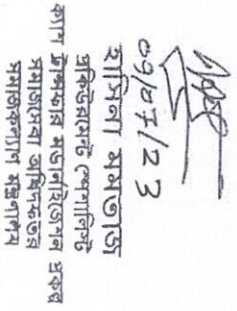 09/07/23
হাসিনা মমতাজ
প্রকিউরমেন্ট স্পেশালিস্ট
ক্যাশ ট্রান্সফার মডার্নাইজেশন প্রকল্প
সমাজসেবা অধিদপ্তর
সমাজকল্যাণ মন্ত্রণালয়